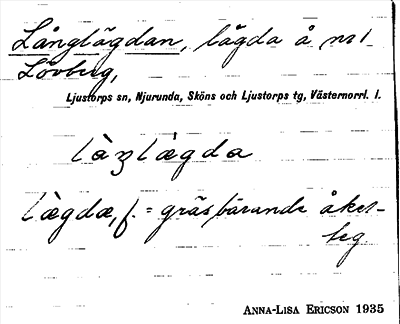 Långlägdan, lägda å nr 1
Lövberg,
Ljustorps sn, Njurunda, Sköns och Ljustorps tg, Västernorrl. l.
làŋlægda
lægdæ, f. = gräsbärande åker-
teg.
ANNA-LISA ERICSON 1935